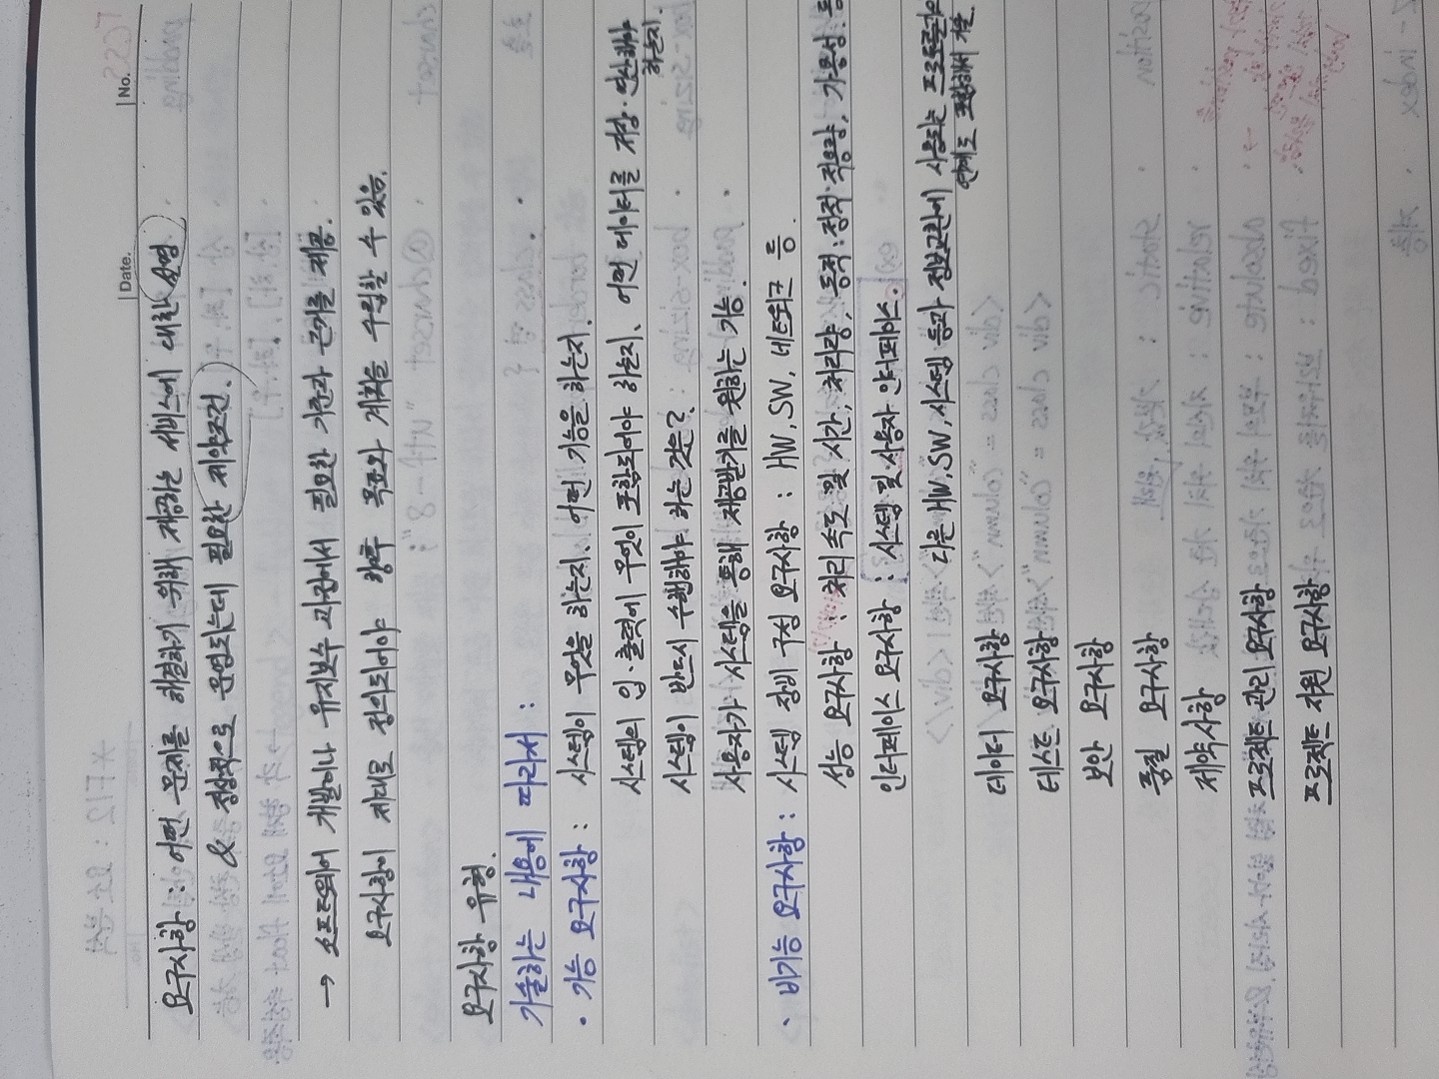 No.
Date.
요구사항 : 어떤 문제를 해결하기 위해 제공하는 서비스에 대한 설명
& 정상적으로 운영되는데 필요한 제약조건.
→ 소프트웨어 개발이나 유지보수 과정에서 필요한 기준과 근거를 제공.
요구사항이 제대로 정의되어야 향후 목표와 계획을 수립할 수 있음.
요구사항 유형.
기술하는 내용에 따라서 :
· 기능 요구사항 : 시스템이 무엇을 하는지, 어떤 기능을 하는지.
시스템의 입·출력에 무엇이 포함되어야 하는지, 어떤 데이터를 저장·연산해야 하는지.
시스템이 반드시 수행해야 하는 것은?
사용자가 시스템을 통해 제공받기를 원하는 기능.
· 비기능 요구사항 : 시스템 장비 구성 요구사항 : HW, SW, 네트워크 등
성능 요구사항 : 처리 속도 및 시간, 처리량, 동적·정적 적용량, 가용성
인터페이스 요구사항 : 시스템 및 사용자 인터페이스.
다른 HW, SW, 시스템 등과 정보교환에 사용되는 프로토콜과의
연계도 포함해서 기술
데이터 요구사항
테스트 요구사항
보안 요구사항
품질 요구사항
제약사항
프로젝트 관리 요구사항
프로젝트 지원 요구사항